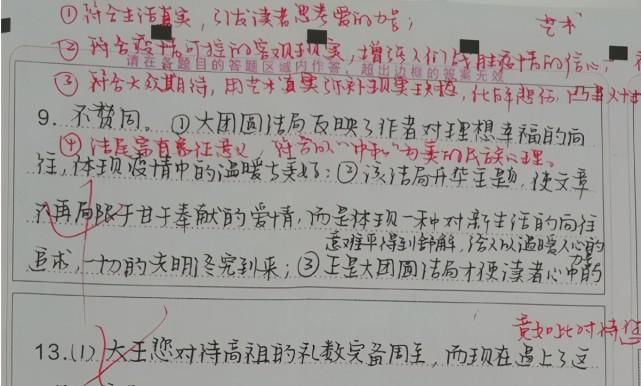 ①符合生活真实，引发读者思考爱的力量；
艺术
②符合疫情可控的客观现实，增强人们战胜疫情的信心，
请在各题目的答题区域内作答，超出边框的答案无效
③符合大众期待，用艺术真实弥补现实缺憾，化解悲伤，
9. 不赞同。①大团圆结局反映了作者对理想幸福的向
④结尾富有象征意义，符合以“中和”为美的民族心理。
往，体现疫情中的温暖与美好；②该结局升华主题，使文章
不再局限于甘于奉献的爱情，而是体现一种对新生活的向往
意难平得到舒解，给人以温暖人心的
力量
追求，一切的光明终究到来；③正是大团圆结局才使读者心中的
竟如此对待您
13.(1)大王您对待高祖的礼数完备周全，而现在遇上了这